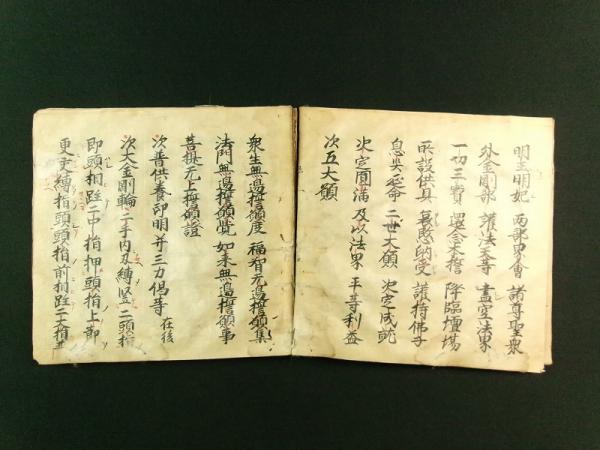 明王明妃 両部界會 諸尊聖衆
外金剛部 護法天等 盡空法界
一切三寶 還念本誓 降臨壇場
所設供具 哀愍納受 護持佛子
息災延命 二世大願 決定成就
決定圓満 及以法界 平等利益
次五大願
衆生無邉誓願度 福智无邉誓願集
法門無邉誓願覺 如来無邉誓願事
菩提无上誓願證
次普供養印明并三力偈等 在後
次大金剛輪 二手内叉縛竖二頭指
即頭相跓 二中指押頭指上節
更互縛指頭頭指前相跓 二大指並